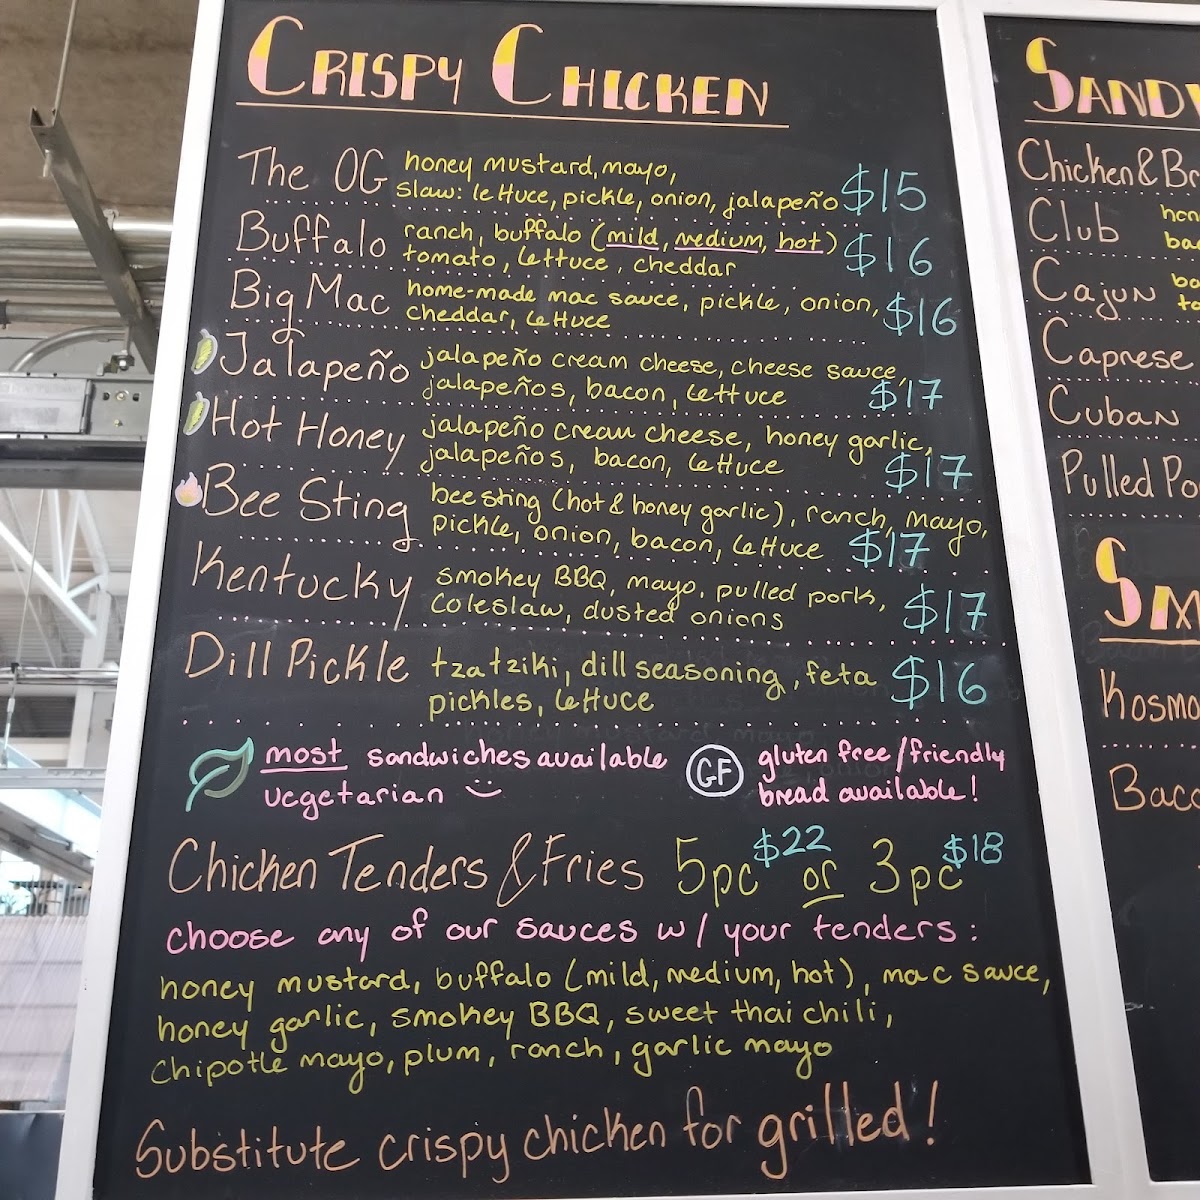 CRISPY CHICKEN
The OG honey mustard, mayo,
slaw: lettuce, pickle, onion, jalapeño $15
Buffalo ranch, buffalo (mild, medium, hot)
tomato, lettuce, cheddar $16
Big Mac home-made mac sauce, pickle, onion,
cheddar, lettuce $16
Jalapeño jalapeño cream cheese, cheese sauce,
jalapeños, bacon, lettuce $17
Hot Honey jalapeño cream cheese, honey garlic,
jalapeños, bacon, lettuce $17
Bee Sting bee sting (hot & honey garlic), ranch, mayo,
pickle, onion, bacon, lettuce $17
Kentucky smokey BBQ, mayo, pulled pork,
coleslaw, dusted onions $17
Dill Pickle tzatziki, dill seasoning, feta
pickles, lettuce $16
most sandwiches available
vegetarian
GF gluten free/friendly
bread available!
Chicken Tenders & Fries 5pc $22 or 3pc $18
choose any of our sauces w/ your tenders:
honey mustard, buffalo (mild, medium, hot), mac sauce,
honey garlic, smokey BBQ, sweet thai chili,
chipotle mayo, plum, ranch, garlic mayo
Substitute crispy chicken for grilled!
SANDW
Chicken & Br
Club
Cajun
Caprese
Cuban
Pulled Po
SM
Kosmo
Baco